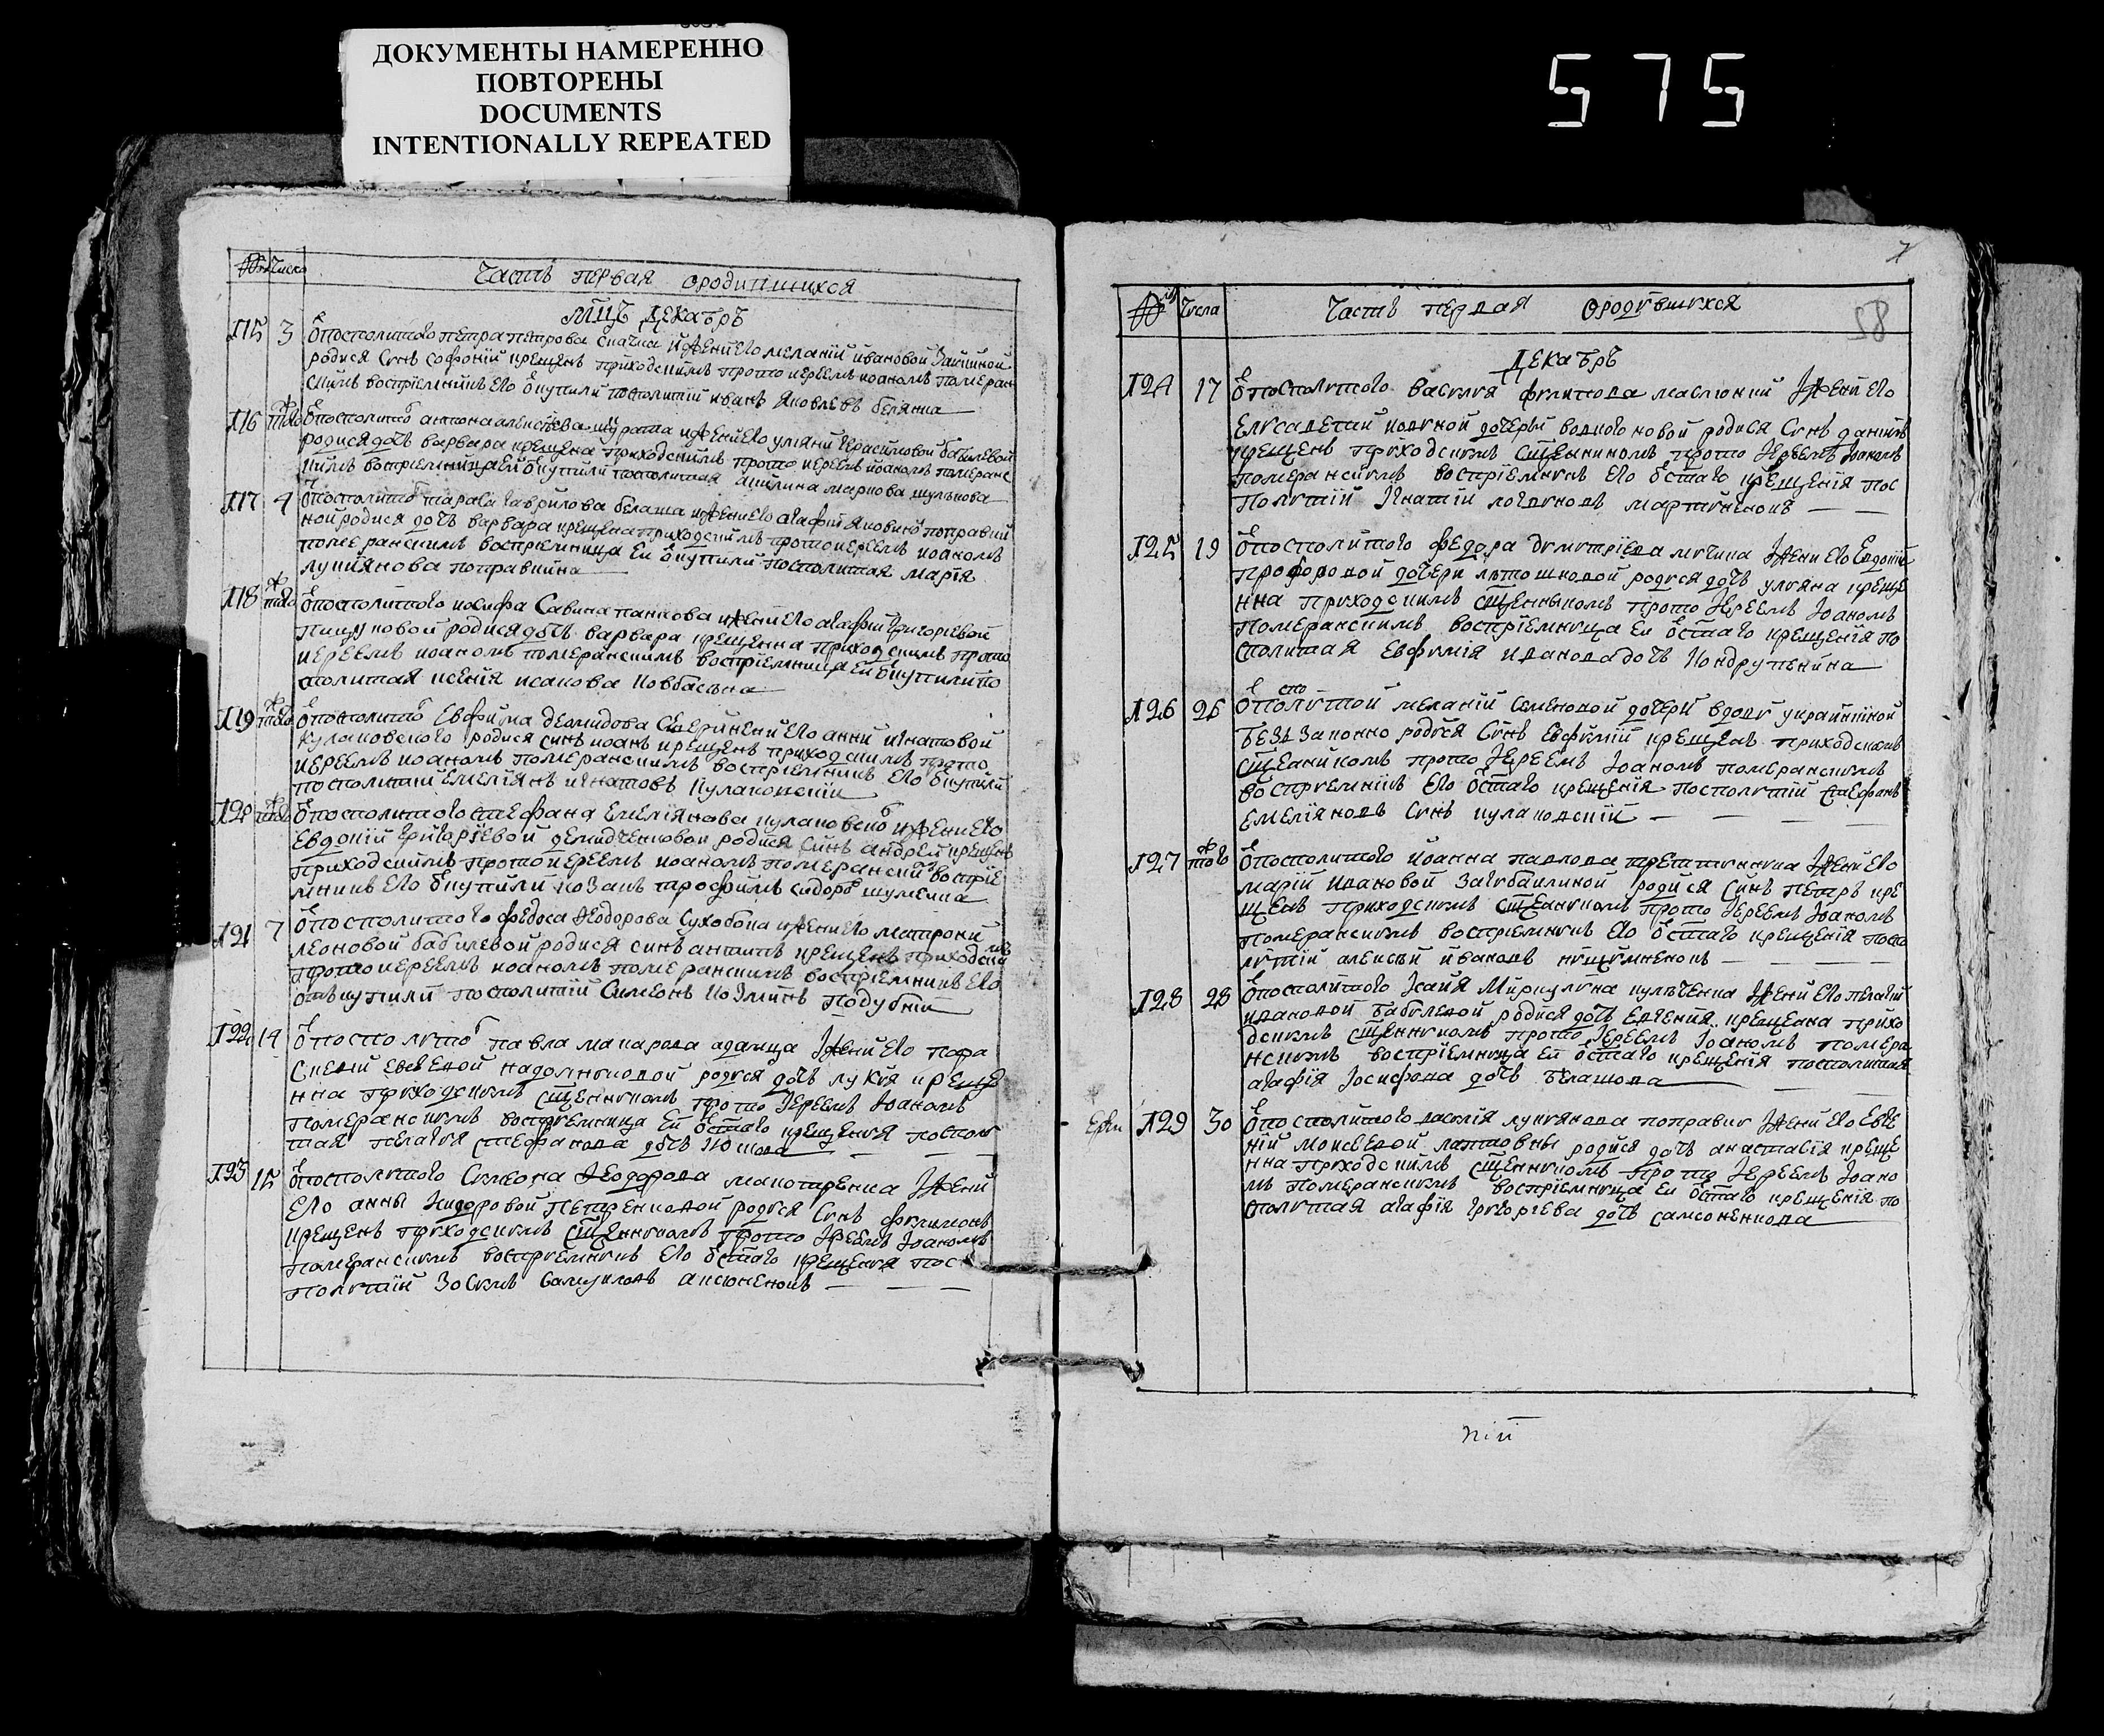 ДОКУМЕНТЫ НАМЕРЕННО
ПОВТОРЕНЫ
DOCUMENTS
INTENTIONALLY REPEATED
575
Числа
Часть первая ородившихся
Мцъ Декабръ
115 3 посполитого петра петрова и жени его меланій ивановой
родися синъ софроній крещенъ приходскимъ прото иереемъ иоаномъ померан
скимъ восприемникъ его ѿ купили посполитій иванъ яковлевъ белянка
116 тогож посполито антона и жени его уляни герасимовой бабилевой
родися дочъ варвара крещена приходскимъ прото иереемъ иоаномъ поміранс
кимъ восприемница ей ѿ купили посполитая акилина маркова шулкова
117 4 посполито тараса гаврилова белаша и жени его агафій яковино поправки
ной родися дочъ варвара крещена приходскимъ протоиереемъ иоаномъ
померанскимъ восприемница ей ѿ купили посполитая марія
лукиянова поправкина
118 тогож посполитого иосифа Савина панкова и жени его агафій григориевой
пищуковой родися дочъ варвара крещенна приходскимъ прото
иереемъ иоаномъ померанскимъ восприемница ей ѿ купили по
сполитая ксенія исакова Ковбасына
119 тогож посполито Евфима демидова и жени его анни игнатовой
кулаковского родися синъ иоанъ крещенъ приходскимъ прото
иереемъ иоаномъ померанскимъ восприемникъ его ѿ купили
посполитій емелиянъ игнатовъ Кулаковскій
120 тогож посполитого стефана емелиянова кулаковско и жени его
Евдокій григориевой демидченковой родися синъ андрей крещенъ
приходскимъ прото иереемъ иоаномъ померанскимъ восприе
мникъ его ѿ купили козакъ трофимъ сидоро шумейка
121 7 посполитого федоса Феодорова Сухобока и жени его матрони
леоновой бабилевой родися синъ антипъ крещенъ приходским
прото иереемъ иоаномъ померанскимъ восприемникъ его
отъ купили посполитій Симеонъ Козминъ подубній
122 14 посполито павла макарова адамца жени его пара
скевій евсеевой надолняковой родися дочъ лукия креще
нна приходскимъ сщенникомъ прото Иереемъ Иоаномъ
померанскимъ восприемница ей ѿ стаго крещения поспол
тая пелагия стефанова дочъ Котова
123 15 посполитого Симеона Феодорова макотренка жени
Его анны Сидоровой Петренковой родися Синъ филимонъ
крещенъ приходскимъ сщенникомъ прото Иереемъ Иоаномъ
померанскимъ восприемникъ его ѿ стаго крещения пос
политій Зосимъ самуиловъ аксюненокъ
7
Числа
Часть первая ородившихся
58
Декабръ
124 17 посполитого василия филипова маслюкий жени его
Елисаветий дочерй родися Синъ данилъ
крещенъ приходскимъ сщенникомъ прото Иереемъ Иоаномъ
померанскимъ восприемникъ его ѿ стаго крещенія пос
политій Игнатій логвиновъ мартиненокъ
125 19 посполитого Федора димитріева жени его Евдокій
дочери лютошковой родися дочъ уляна креще
нна приходскимъ сщенникомъ прото Иереемъ Иоаномъ
померанскимъ восприемница ей ѿ стаго крещенія по
сполитая Евфимія иванова дочъ Кондрупкина
126 26 посполитой меланій семеновой дочерй вдови украйнкиной
Беззаконно родися Синъ Евфимій крещенъ приходскимъ
сщеникомъ прото Иереемъ Иоаномъ померанскимъ
восприемникъ его ѿ стаго крещенія посполитій стефанъ
емелияновъ синъ кулаковскій
127 тогож посполитого иоанна павлова третинника жени его
марій ивановой загубаилиной родися Синъ петръ кре
щенъ приходскимъ сщеникомъ прото Иереемъ Иоаномъ
померанскимъ восприемникъ его ѿ стаго крещенія поспо
литій алексей ивановъ
128 28 посполитого Исайя Миркулина кулченка жени его пелагий
ивановой бабилевой родися дочъ евгения крещена прихо
дскимъ сщенникомъ прото Иереемъ Иоаномъ помера
нскимъ восприемница ей ѿ стаго крещенія посполитая
агафія Иосифова дочъ белашова
129 30 посполитого василія лукиянова поправки жени его евге
ній моисеевой лаптовны родися дочъ анастасія креще
нна приходскимъ сщенникомъ прото Иереемъ Иоано
мъ померанскимъ восприемница ей ѿ стаго крещенія по
сполитая агафія григоріева дочъ самсоненкова